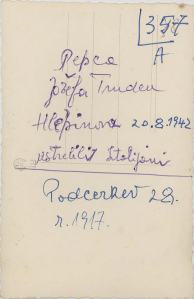 357
A
Pepca
Jožefa Truden
Hlepinova 20.8.1942
ustrelili Italijani
Podcerkev 28.
r. 1917.